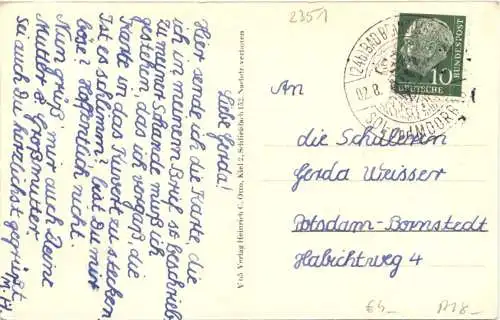 Liebe Gerda!
Hier sende ich die Karte, die
ich in meinem Brief ist beschrieb.
Zu meiner Schande muß ich
gestehen, das ich vergaß, die
Karte in das Kuvert zu stecken
Ist es schlimm? bist Du mir
böse? Hoffentlich nicht.
Nun grüß mir auch Deine
Mutter & Großmutter
Sei auch du herzlichst gegrüßt
M. H.
V 63 Verlag Heinrich C. Otto, Kiel 2, Schlieffach 152, Nachdr. verboten
2351
(24b) BAD
02.8.
SOL
10
DEUTSCHE
BUNDESPOST
An
die Schülerin
Gerda Weisser
Potsdam-Bornstedt
Habichtweg 4
€3,-
A18,-